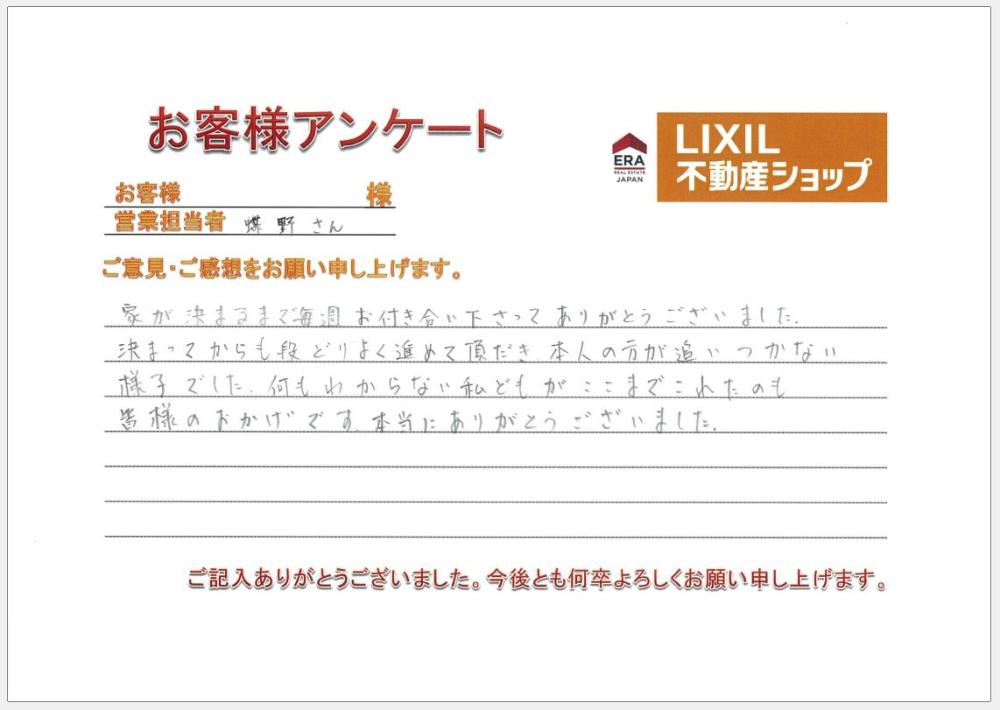 お客様アンケート
ERA
REAL ESTATE
JAPAN
LIXIL
不動産ショップ
お客様 様
営業担当者 蝶野さん
ご意見・ご感想をお願い申し上げます。
家が決まるまで毎週お付き合い下さってありがとうございました。
決まってからも段どりよく進めて頂だき、本人の方が追いつかない
様子でした。何もわからない私どもがここまでこれたのも
皆様のおかげです。本当にありがとうございました。
ご記入ありがとうございました。今後とも何卒よろしくお願い申し上げます。